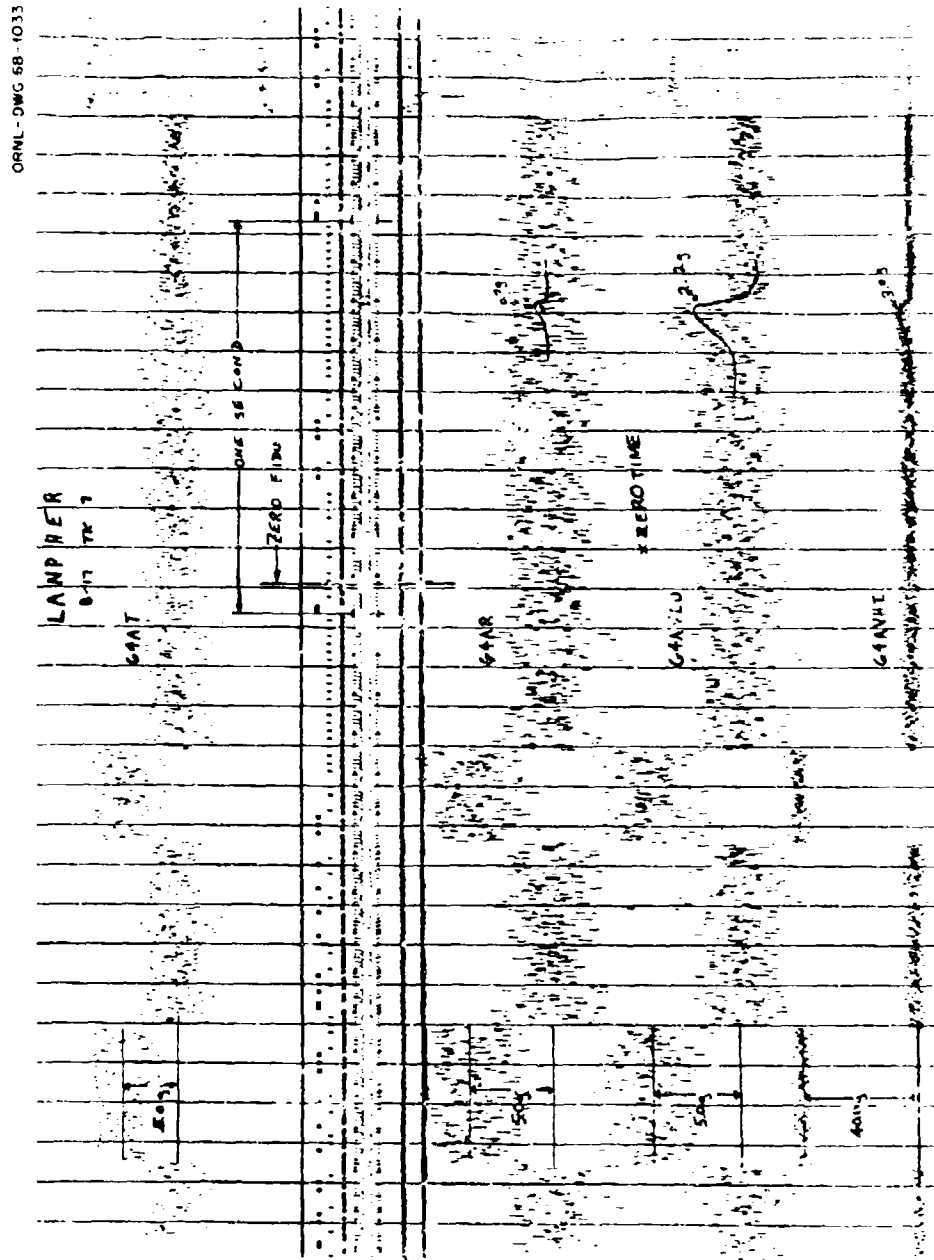 ORNL-DWG 68-1033
LANPHER
B-17 TK 7
64AT
ONE SECOND
ZERO FIDU
64AR
.7g
x ZERO TIME
2.2g
64AVHI
3.0g
5.0g
5.0g
40.0g